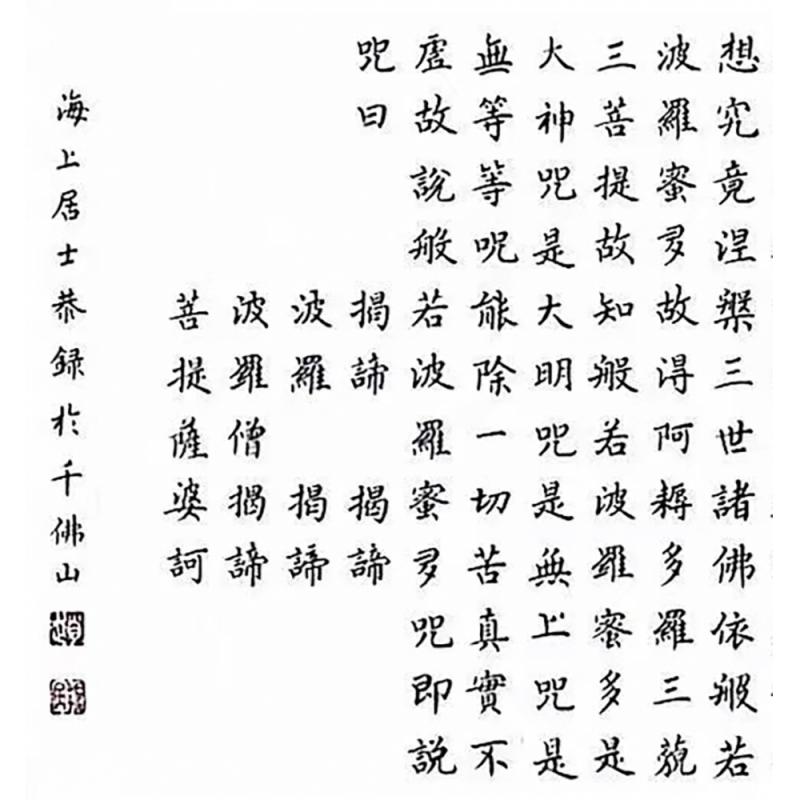 想究竟涅槃三世諸佛依般若
波羅蜜多故得阿耨多羅三藐
三菩提故知般若波羅蜜多是
大神咒是大明咒是無上咒是
無等等呪能除一切苦真實不
虛故說般若波羅蜜多咒即說
咒曰
揭諦 揭諦
波羅 揭諦
波羅僧揭諦
菩提薩婆訶
海上居士恭録於千佛山